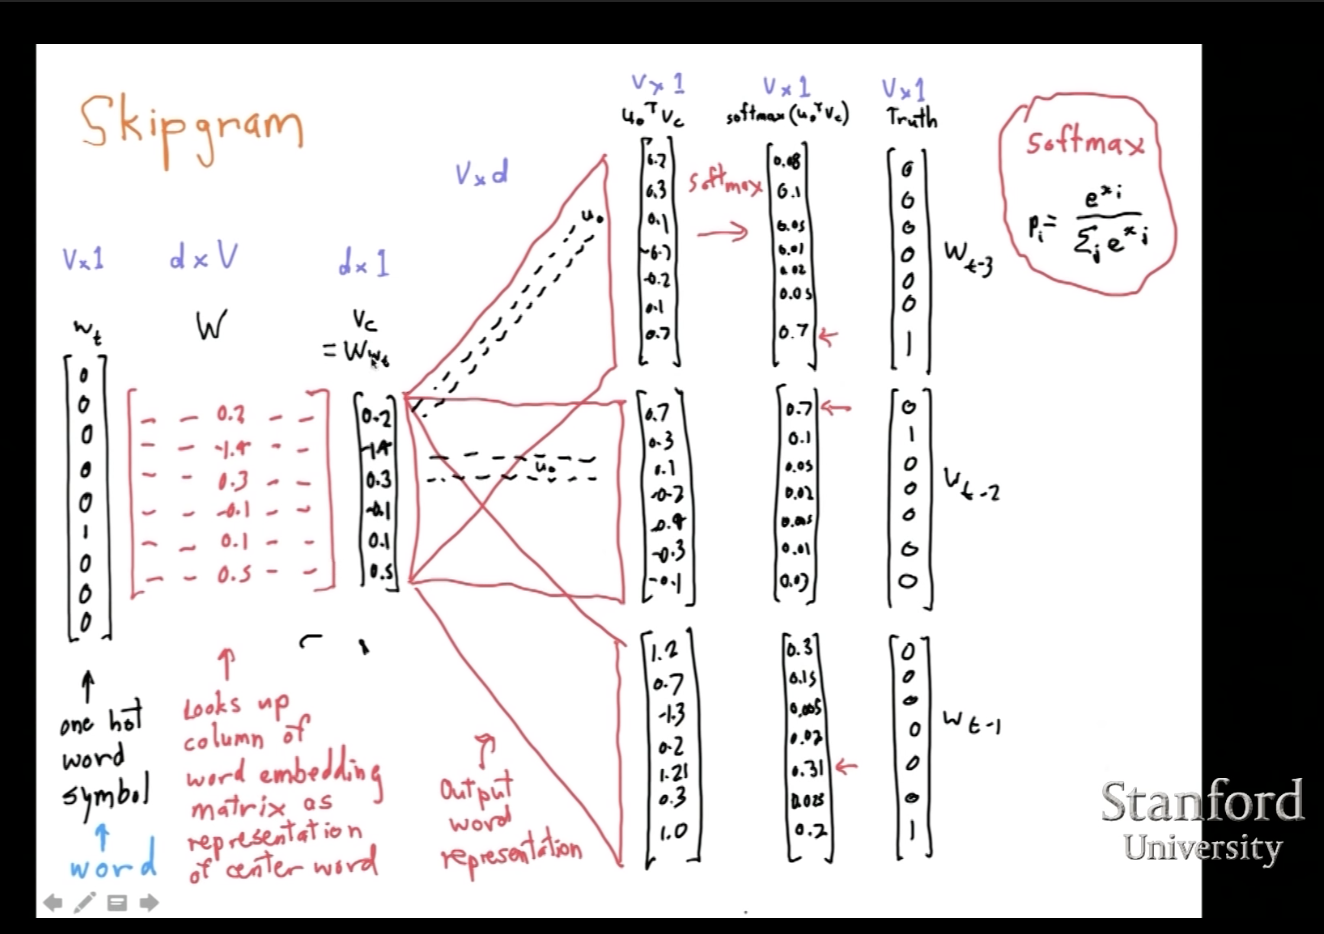 Skipgram
V×1
w_t
0
0
0
0
0
1
0
0
0
one hot
word
symbol
word
d×V
W
0.2
-1.4
0.3
-0.1
0.1
0.5
Looks up
column of
word embedding
matrix as
representation
of center word
d×1
V_c
= W w_t
0.2
-1.4
0.3
-0.1
0.1
0.5
V×d
u_o
u_o
Output
word
representation
V×1
u_o^T v_c
0.3
0.1
-0.2
0.1
0.7
0.7
0.3
0.1
-0.2
-0.3
-0.1
1.2
0.7
-1.3
0.2
1.21
0.3
1.0
softmax
V×1
softmax(u_o^T v_c)
0.1
0.05
0.01
0.02
0.05
0.7
0.7
0.1
0.05
0.02
0.005
0.01
0.03
0.3
0.15
0.005
0.02
0.31
0.2
V×1
Truth
0
0
0
0
0
0
1
w_t-3
0
1
0
0
0
0
0
w_t-2
0
0
0
0
0
0
1
w_t-1
softmax
p_i = e^x_i / Σ_j e^x_j
Stanford
University